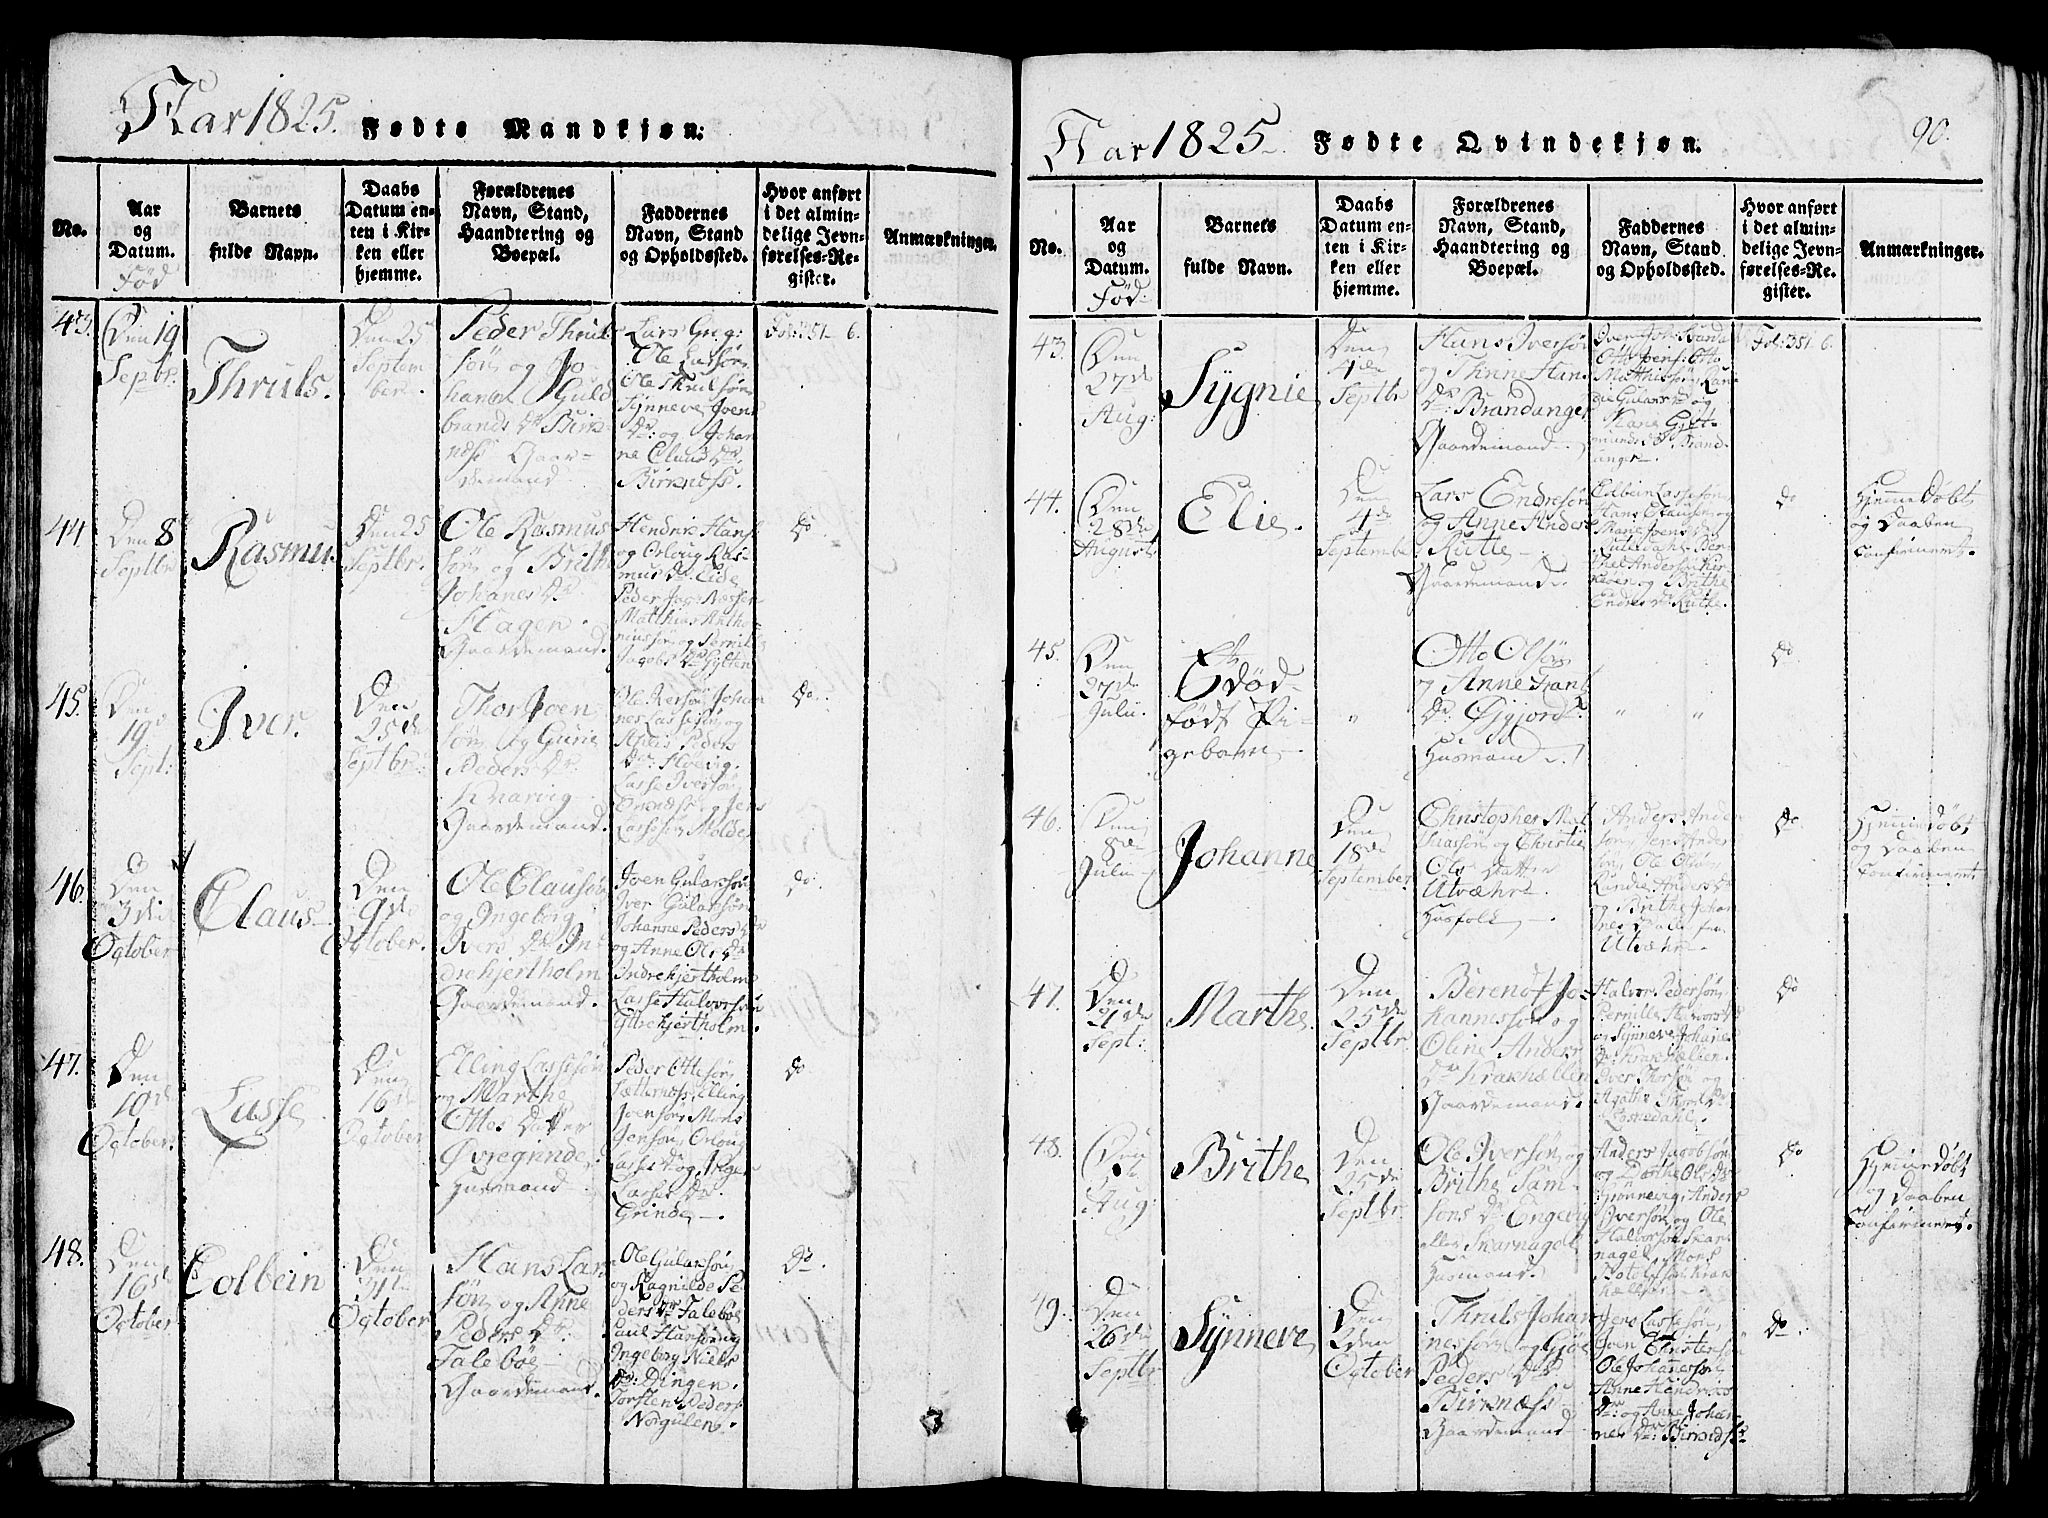 Aar 1825. Fødte Mandkjøn:
No.
Aar
og
Datum.
Fød
Barnets
fulde Navn.
Daabs
Datum en-
ten i Kir-
ken eller
hjemme.
Forældrenes
Navn, Stand,
Haandtering og
Boepæl.
Faddernes
Navn, Stand
og Opholdssted.
Hvor anført
i det almin-
delige Jevn-
førelses-Re-
gister.
Anmærkninger.
43.
Den 19
Septbr.
Thruls.
Den 25
Septem
ber
Peder Thruls
søn og Jo-
hanne Guld
brands Dr Birk-
næss Gaar-
demand
Lars Greg:
Ole Lassøn
Ole Thrulsøn
Synneve Joens
Dr: og Johan
ne Claus Dr
Birknæss.
Fol: 351 6.
44.
Den 8
Septbr
Rasmus
Den 25
Septbr.
Ole Rasmus
søn og Brithe
Johanes Dr
Hagen.
Gaardemand.
Hendrik Hans
og Orloug Ras-
mus Dr Eide
Peder Jac: Nessen
Matthias Antho-
niussøn og Pernille
Jacobs Dr Gylten
do
45.
Den
19de
Sept:
Iver.
Den
25de
Septbr
Thor Joen
søn og Gurie
Peders Dr:
Kvarvig
Gaardemand.
nes Lassesøn og
Peders
Lasse Iversøn
og Jens
Lassesøn Molde
do.
46.
Den
3die
October
Claus
Den
9de
October.
Ole Clausøn
og Ingeborg
Ivers Dr In-
drehjertholm
Gaardemand.
Joen Gularssøn
Iver Gularsøn
Johanne Peders Dr
og Anne Ols Dr
Indrehjertholm
Lasse Halvorsøn
Yttrehjertholm.
do
47.
Den
10de
October.
Lasse
Den
16de
October
Elling Lassesøn
og Marthe
Ottos Datter
Øvregrinde.
Husmand
Peder Ottesøn
Sætternæss, Elling
Joensøn Mons
Jensøn, Orloug
Lasse Dr og Inger
Lasses Dr.
Grinde.
do
48.
Den
16de
October
Colbein
Den
October
Hans Lar
søn og Anne
Peders Dr:
Talebøe
Gaardemand.
Ole Gularssøn
og Ragnilde Pe
ders Dr Talebøe
Paul Hansøn og
Ingeborg Niels
Dr: Dingen.
Torsten Peders
Norgulen.
Do.
Aar 1825. Fødte Qvindekjøn.
90.
No.
Aar
og
Datum.
Fød:
Barnets
fulde Navn.
Daabs
Datum en-
ten i Kir-
ken eller
hjemme.
Forældrenes
Navn, Stand,
Haandtering og
Boepæl.
Faddernes
Navn, Stand
og Opholdssted.
Hvor anført
i det almin-
delige Jevn-
førelses-Re-
gister.
Anmærkninger.
43.
Den
27de
Aug:
Sygnie
Den
4de
Septbr
Hans Iversøn
og Thrine Han
Dr: Brandanger
Gaardemand.
Otto Jens: Otto
Matthissøn, Ran
die Gulars Dr og
Marie Gjet-
munds Dr Brand
anger
Fol: 351 6.
44.
Den
28de
August
Elie.
Den
4de
September
Lars Endresøn
og Anne Anders
Rutle
Gaardemand.
Colbein Lassesøn
Hans Clausøn og
Marie Joens Dr
Rutledahl Ber-
thel Andersøn Kir-
køen og Brithe
Endres Dr Rutle.
do
Hjemmedøbt
og Daaben
confirmeret.
45.
Den
27de
Julii
Et
Død-
født Pi-
gebarn
"
Otto Olsøn
og Anne Frants
Dr: Øygjord.
Husmand
" "
do
46.
Den
8de
Julii
Johanne
Den
18de
September
Christopher Mat
hiassøn og Christie
Ols Datter
Utvæhr
Husfolk
Anders Ander
søn Jens Ander
søn, Ole Olsøn
Randie Anders Dr
og Brithe Johan
nes Datter fra
Utvæhr
do.
Hjemmedøbt
og Daaben
confirmeret
47.
Den
21de
Sept:
Marthe
Den
25de
Septbr.
Berendt Jo-
hannessøn og
Oline Anders
Dr Krakhællen
Gaardemand.
Halvor Pedersøn
Pernille Halvors Dr
og Synneve Johanes
Dr Krakhællen
Iver Thorsøn og
Agathe Siurs Dr
Losnedahl.
do
48.
Den
Aug:
Brithe
Den
25de
Septbr.
Ole Iversøn og
Brithe Sam-
sons Dr Engevig
eller Skarnagel
Husmand.
Anders Jacobsøn
og Dorthe Ols Dr
Grønnevig, Anders
Iversøn og Ole
Halvorsøn Skar
nagel, Mons
Botolfsøn Krak
hællen
do
Hjemmedøbt
og Daaben
confirmeret.
49.
Den
26de
Septbr
Synneve
Den
2den
October
Thruls Johan
nessøn og Gjøe
Peders Dr
Birknæss
Gaardemand
Jens Lassesøn,
Joen Christensøn
Ole Johannesøn
Anne Hendriks
Dr: og Anne Johan-
nes Dr: Birknæss
do.